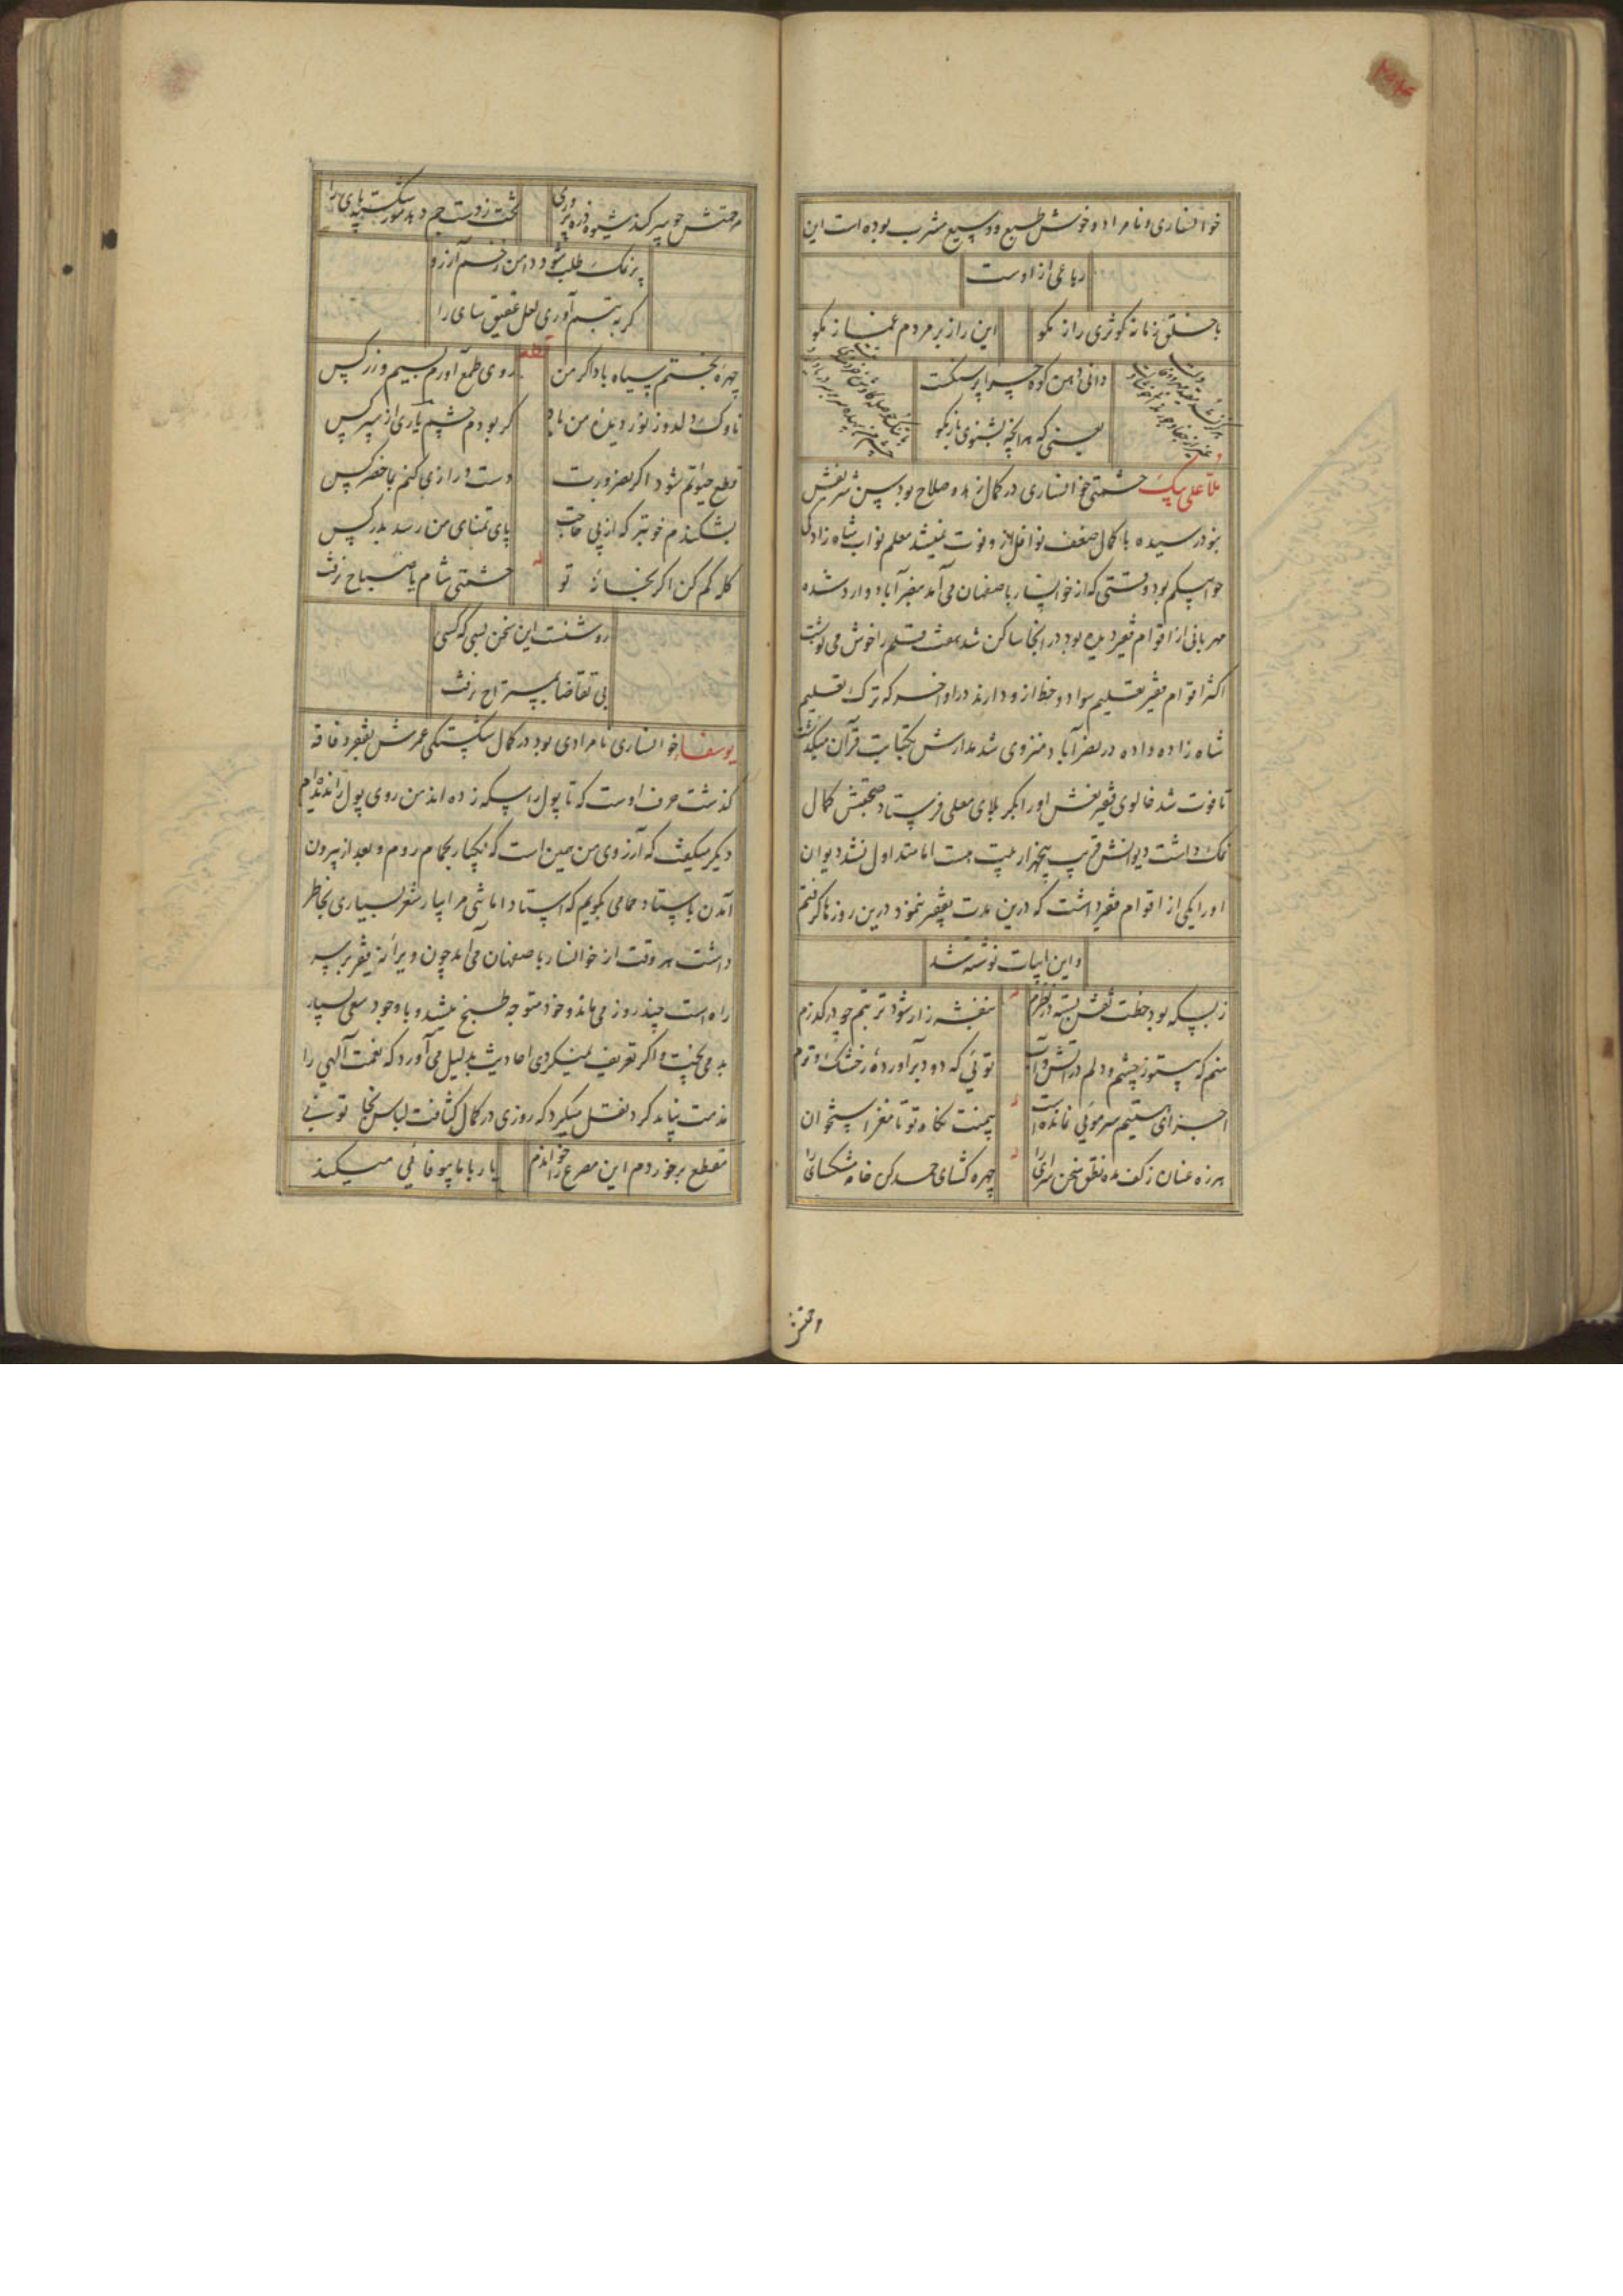 خوانساری و نامراد و خوش طبع و وسیع مشرب بوده است این
رباعی از اوست
با خلق زمانه کوژی راز مگو
این راز بر مردم غماز مگو
دانی دهن کوه چرا پر سنگست
یعنی که هر آنچه بشنوی باز مگو
ملا علی بیک حشمتی خوانساری در کمال زهد و صلاح بود سن شریفش
بنود رسیده با کمال ضعف نوافل از و فوت نمیشد معلم نواب شاه زادگی
حوا بیکم بود وقتی که از خوانسار باصفهان می آمد بنصرآباد وارد شده
مهربانی از اقوام فقیر دیده بود در آنجا ساکن شد هفت قلم را خوش می نوشت
اکثر اقوام فقیر تعلیم سواد و خط ازو دارند در اواخر که ترک تعلیم
شاه زاده داده در نصرآباد منزوی شد مدارش بکتابت قرآن میگذشت
تا فوت شد خالوی فقیر نعش او را بکربلای معلی فرستاد صحبتش کمال
نمک داشت دیوانش قریب پنجهزار بیت هست اما متداول نشد دیوان
او را یکی از اقوام فقیر داشت که درین مدت بفقیر ننمود درین روزها گرفتم
و این ابیات نوشته شد
ز بسکه بود خطت نقش بسته در نظرم
بنفشه زار شود تربتم چو در گذرم
منم که چشم و دلم در آتش و آبست
توئی که دود برآورده ز خشک و ترم
اجزای هستیم سر موئی نمانده است
نگاه تو تا مغز استخوان
هرزه عنان ز کف مده نطق سخن سرای را
چهره گشای حمد کن خامه مشکسای را
مرحمتش چو سر کند شیوه ذره پروری
تخت ز دست جم دهد مور شکسته پای را
پر نمک طلب شود دامن زخم آرزو
گر به تبسم آوری لعل عقیق سای را
قطعه
چهره بختم سیاه باد اگر من
روی طمع آورم بسیم و زر کس
ناوک دلدوز نور دیده من باد
گر بودم چشم یاری از سپر کس
قطع حیاتم شود اگر بضرورت
دست درازی کنم بما حضر کس
بشکندم خوبتر که از پی حاجت
پای تمنای من رسد بدر کس
گله کم کن اگر بخانه تو
حشمتی شام یا صباح نرفت
روشنت این سخن بسی که کسی
بی تقاضا بمستراح نرفت
یوسفا خوانساری نامرادی بود در کمال شکستگی عمرش بفقر و فاقه
گذشت حرف اوست که تا پول را سکه زده اند من روی پول را ندیده ام
دیگر میگفت که آرزوی من همین است که یکبار بحمام روم و بعد از بیرون
آمدن باستاد حمامی بگویم که استاد اما شی مرا بیار شعر بسیاری بخاطر
داشت هر وقت از خوانسار باصفهان می آمد چون ویرانه فقیر بر سر
راه است چند روز می ماند و خود متوجه طبخ میشد و با وجود سعی بسیار
بد می پخت و اگر تعریف نمیکردی احادیث بدلیل می آورد که نعمت آلهی را
مذمت نباید کرد نقل میکرد که روزی در کمال کثافت لباس
بر خوردم این مصرع را خواندم
یار با ما بیوفائی میکند